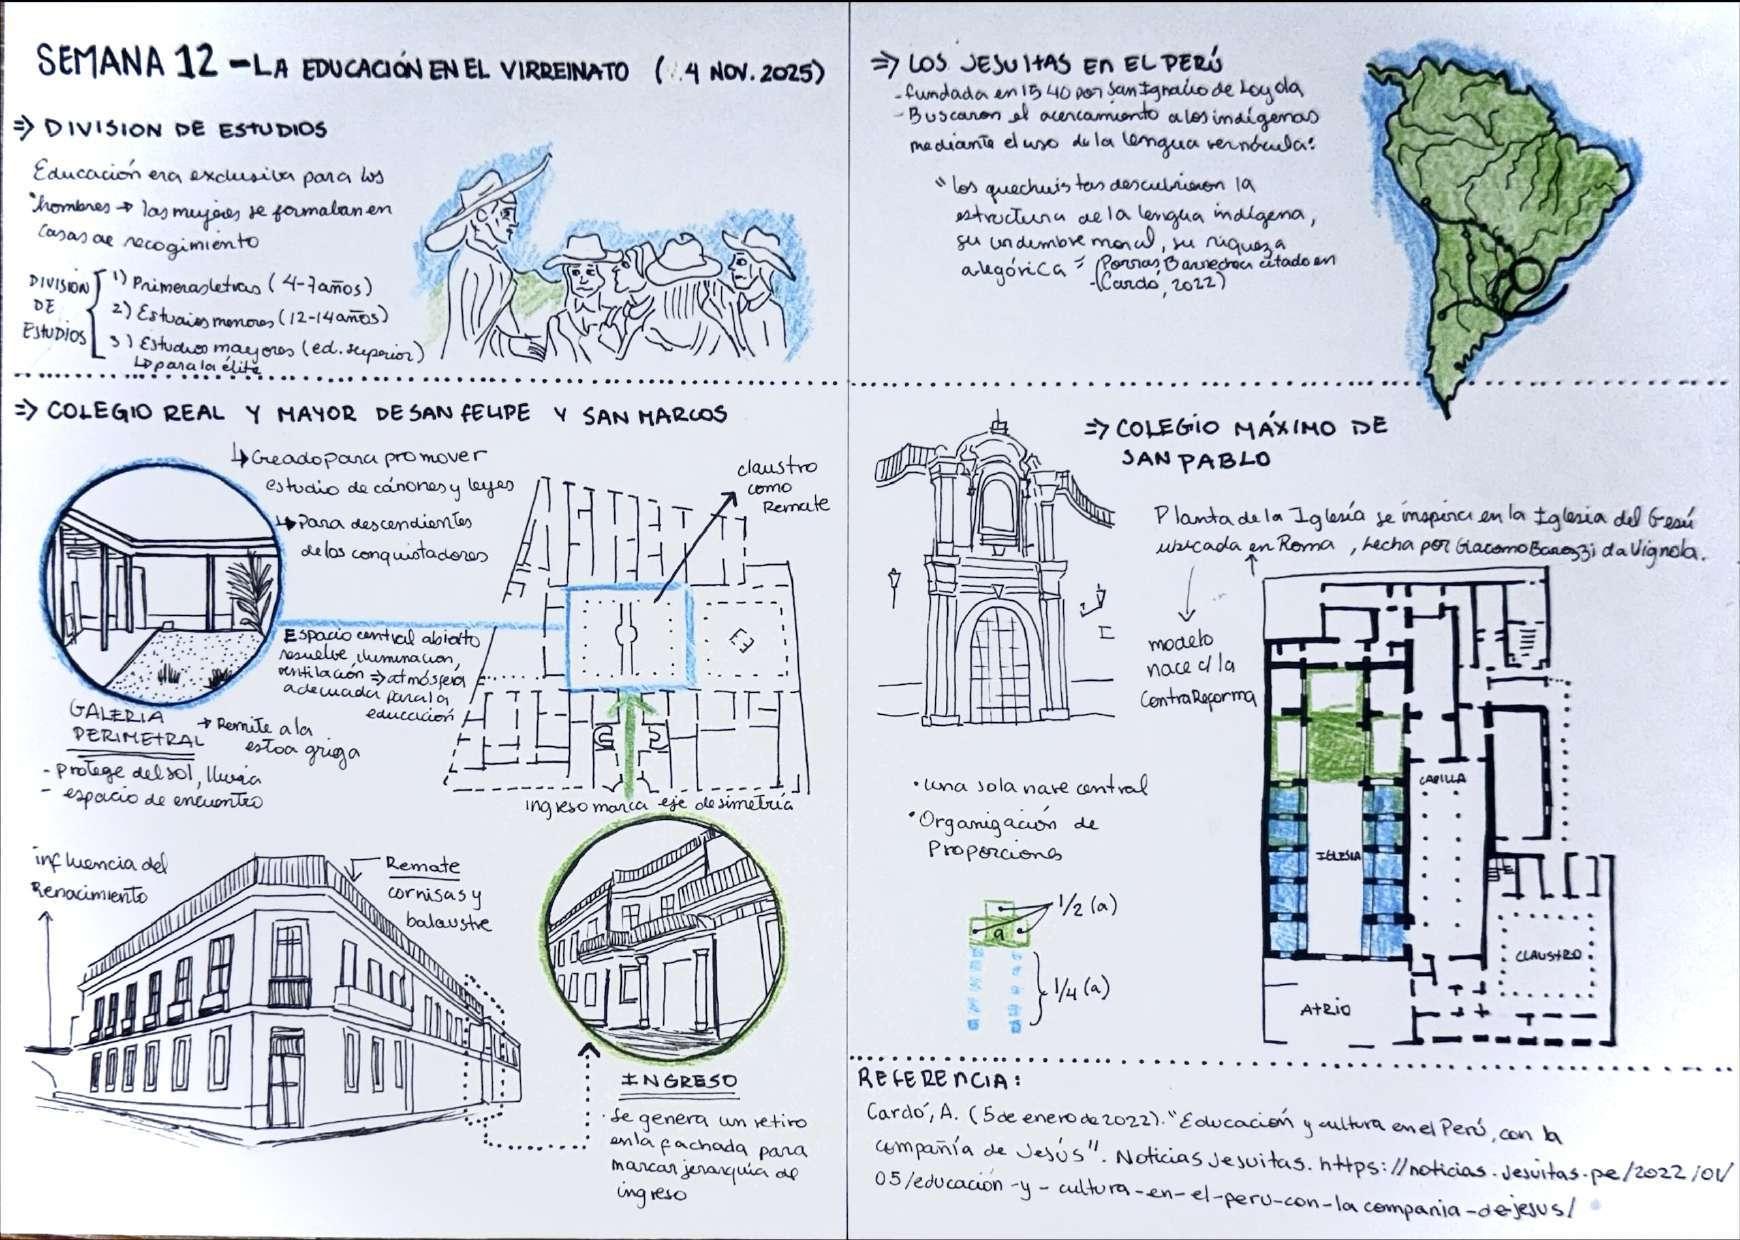 SEMANA 12 - LA EDUCACIÓN EN EL VIRREINATO ( 4 NOV. 2025)
⇒ DIVISION DE ESTUDIOS
Educación era exclusiva para los
hombres → las mujeres se formaban en
casas de recogimiento
DIVISION
DE
ESTUDIOS
1) Primeras letras (4-7 años)
2) Estudios menores (12-14 años)
3) Estudios mayores (ed. superior)
↳ para la élite
⇒ COLEGIO REAL Y MAYOR DE SAN FELIPE Y SAN MARCOS
↳ Creado para promover
estudio de cánones y leyes
↳ Para descendientes
de los conquistadores
claustro
como
Remate
Espacio central abierto
resuelve iluminación,
ventilación ⇒ atmósfera
adecuada para la
educación
GALERIA
PERIMETRAL
→ Remite a la
estoa griega
- protege del sol, lluvia
- espacio de encuentro
ingreso marca eje de simetría
influencia del
Renacimiento
Remate
cornisas y
balaustre
INGRESO
· Se genera un retiro
en la fachada para
marcar jerarquía de
ingreso
⇒ LOS JESUITAS EN EL PERÚ
- fundada en 1540 por San Ignacio de Loyola
- Buscaron el acercamiento a los indígenas
mediante el uso de la lengua vernácula:
"los quechuistas descubrieron la
estructura de la lengua indígena,
su urdimbre moral, su riqueza
alegórica" (Porras Barrechea citado en
(Cardó, 2022)
⇒ COLEGIO MÁXIMO DE
SAN PABLO
Planta de la Iglesia se inspira en la Iglesia del Gesú
ubicada en Roma, hecha por Giacomo Barozzi da Vignola.
modelo
nace c/ la
ContraReforma
• una sola nave central
• Organización de
Proporciones
1/2 (a)
a
1/4 (a)
CAPILLA
IGLESIA
CLAUSTRO
ATRIO
REFERENCIA:
Cardó, A. (5 de enero de 2022). "Educación y cultura en el Perú, con la
compañía de Jesús". Noticias Jesuitas. https://noticias.jesuitas.pe/2022/01/
05/educación-y-cultura-en-el-peru-con-la compania-de-jesus/